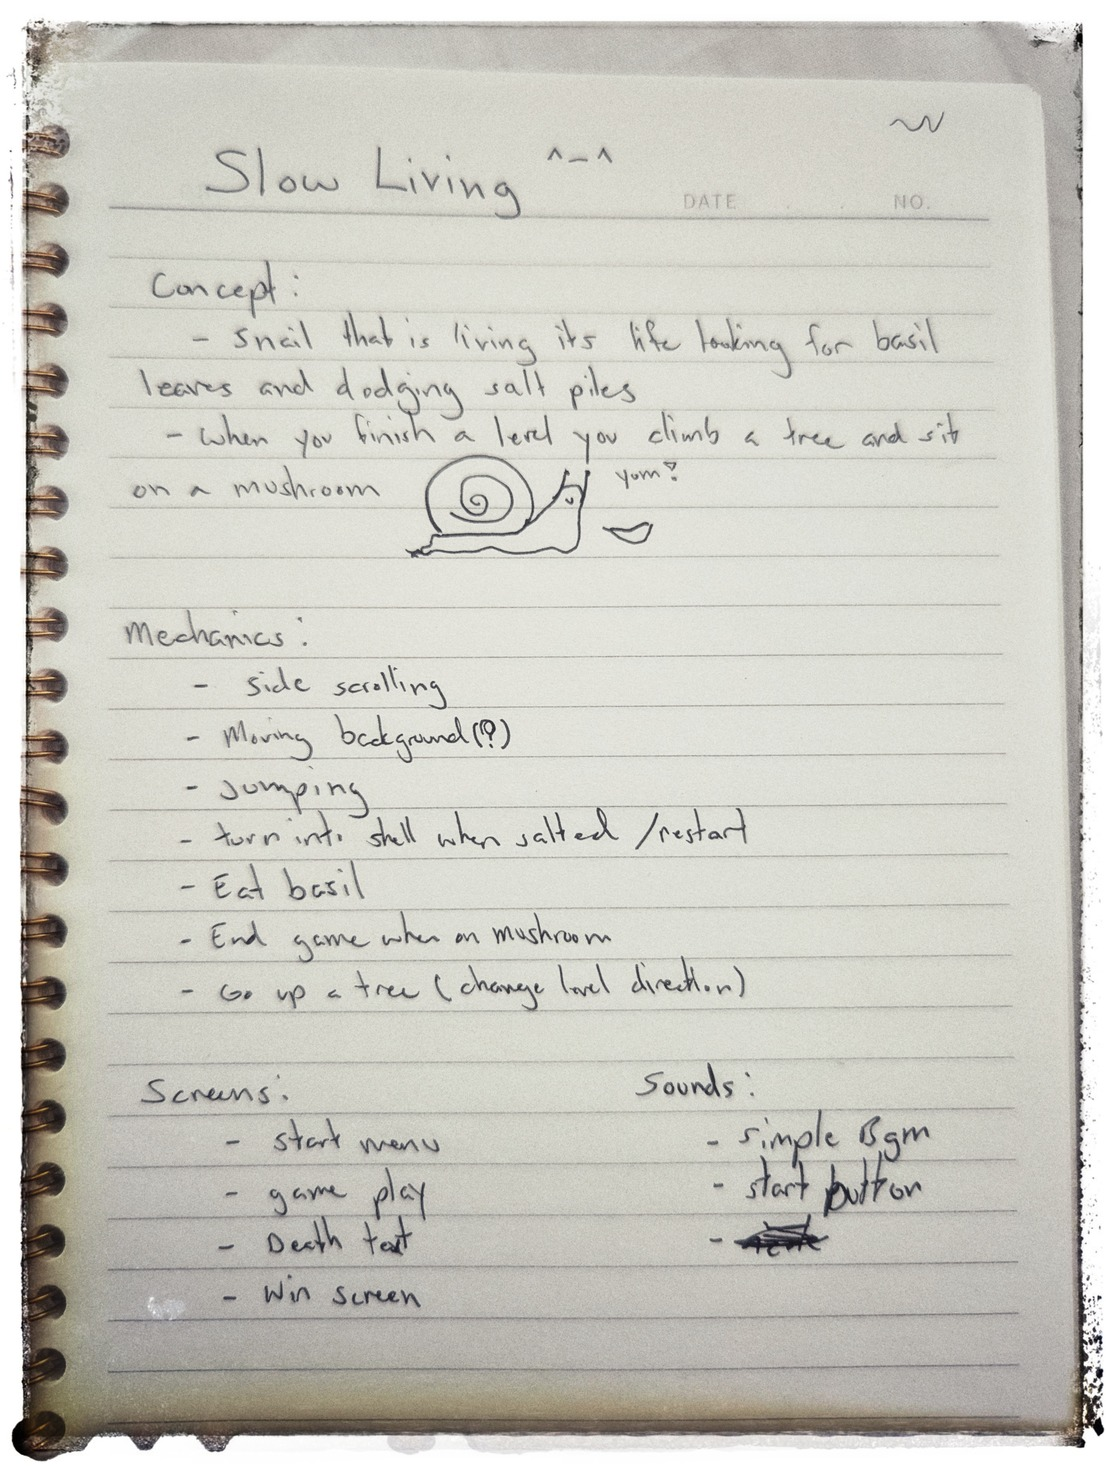 Slow Living ^-^
DATE . . NO.
Concept:
- Snail that is living its life looking for basil
leaves and dodging salt piles
- When you finish a level you climb a tree and sit
on a mushroom
yum?
Mechanics:
- Side scrolling
- Moving background(?)
- Jumping
- turn into shell when salted /restart
- Eat basil
- End game when on mushroom
- Go up a tree (change level direction)
Screens:
- start menu
- game play
- Death text
- Win screen
Sounds:
- simple Bgm
- start button
-